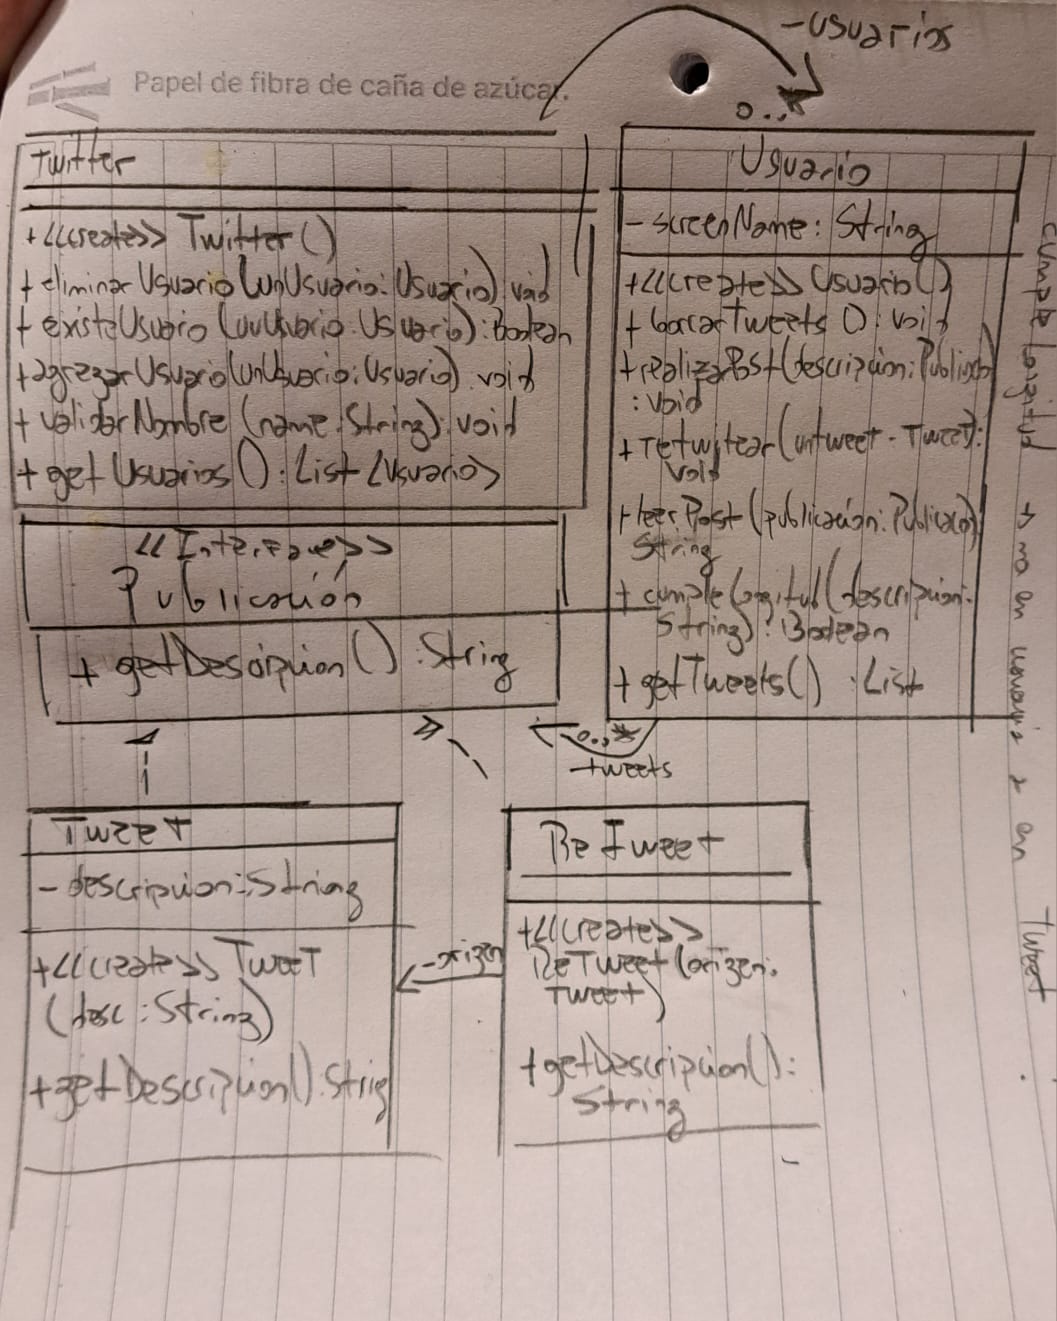 Papel de fibra de caña de azúcar.
-usuarios
0..*
Twitter
+<<create>> Twitter()
+ eliminarUsuario(unUsuario: Usuario): void
+ existeUsuario(unUsuario: Usuario): Boolean
+agregarUsuario(unUsuario: Usuario): void
+ validarNombre (name: String): void
+ getUsuarios(): List <Usuario>
Usuario
- screenName: String
+<<create>> Usuario()
+ borrarTweets (): void
+realizarPost(descripcion:
: void
+retwitear(untweet: Tweet):
void
+leerPost (publicación:
String
+ cumpleLongitud(descripcion:
String): Boolean
+ getTweets() : List
<<Interface>>
Publicación
+ getDescripcion() : String
0..*
tweets
Tweet
- descripcion: String
+<<create>> Tweet
(desc: String)
+getDescripcion(): String
-origen
ReTweet
+<<create>>
ReTweet(origen:
Tweet)
+getDescripcion():
String
cumple longitud → va en usuario o en Tweet